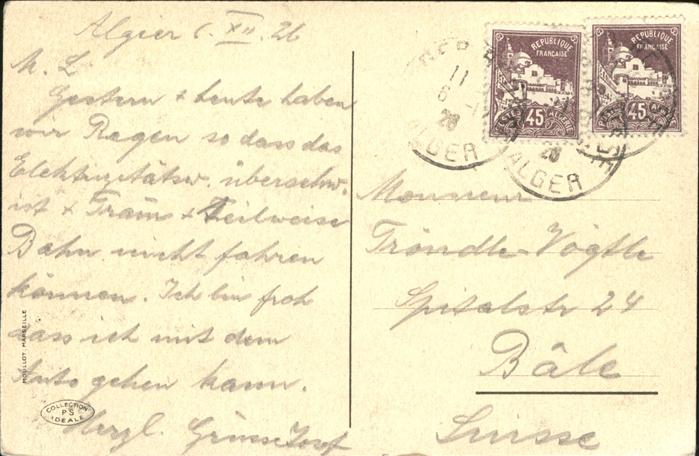 Algier 6. XII. 26
M. L
Gestern + heute haben
wir Regen so dass das
Elektrizitätsw. überschw.
ist + Tram + teilweise
Bahn nicht fahren
können. Ich bin froh
dass ich mit dem
Auto gehen kann.
Herzl. Grüsse Josef
MOULLOT MARSEILLE
COLLECTION
PS
IDEALE
REPUBLIQUE
FRANCAISE
45
ALGERIE
REPUBLIQUE
FRANCAISE
45
11
6
26
ALGER
26
ALGER
Monsieur
Tröndle-Vögtle
Spitalstr 24
Bâle
Suisse